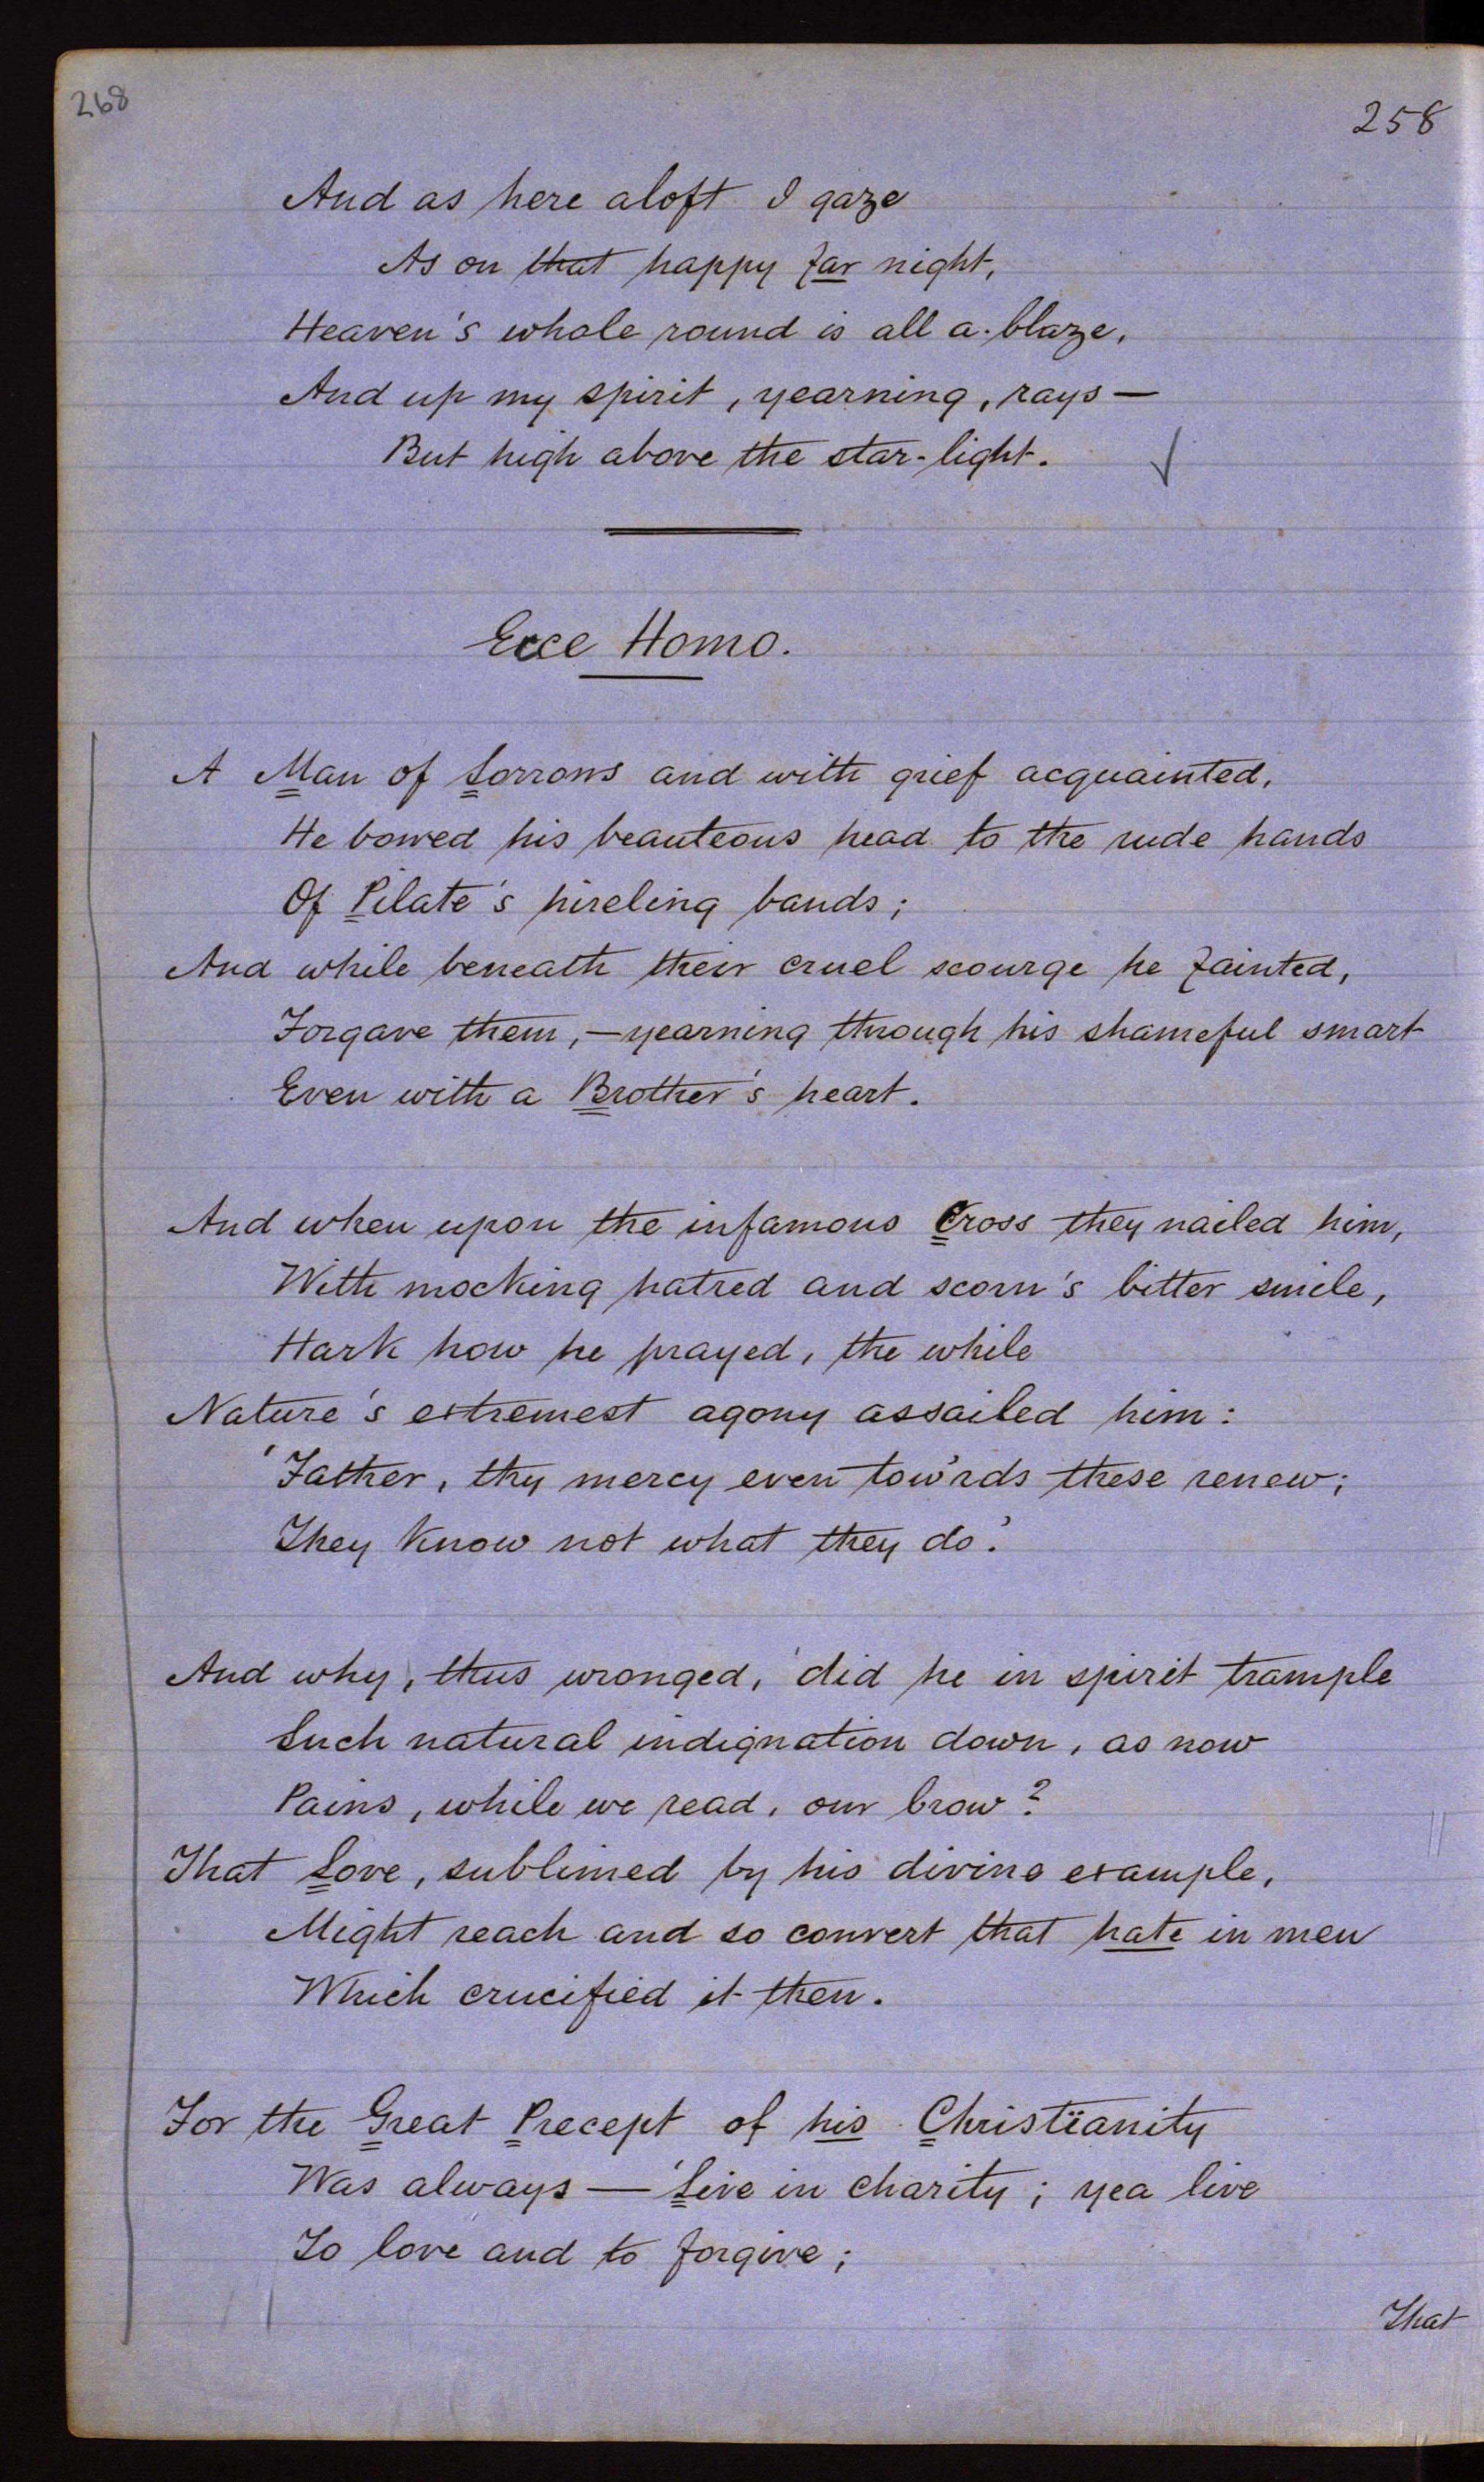 268
258
And as here aloft I gaze
As on that happy far night,
Heaven's whole round is all a-blaze,
And up my spirit, yearning, rays—
But high above the star-light.
Ecce Homo.
A Man of Sorrows and with grief acquainted,
He bowed his beauteous head to the rude hands
Of Pilate's hireling bands;
And while beneath their cruel scourge he fainted,
Forgave them,—yearning through his shameful smart
Even with a Brother's heart.
And when upon the infamous Cross they nailed him,
With mocking hatred and scorn's bitter smile,
Hark how he prayed, the while
Nature's extremest agony assailed him:
'Father, thy mercy even tow'rds these renew;
They know not what they do.'
And why, thus wronged, did he in spirit trample
Such natural indignation down, as now
Pains, while we read, our brow?
That Love, sublimed by his divine example,
Might reach and so convert that hate in men
Which crucified it then.
For the Great Precept of his Christïanity
Was always—'Live in charity; yea live
To love and to forgive;
That